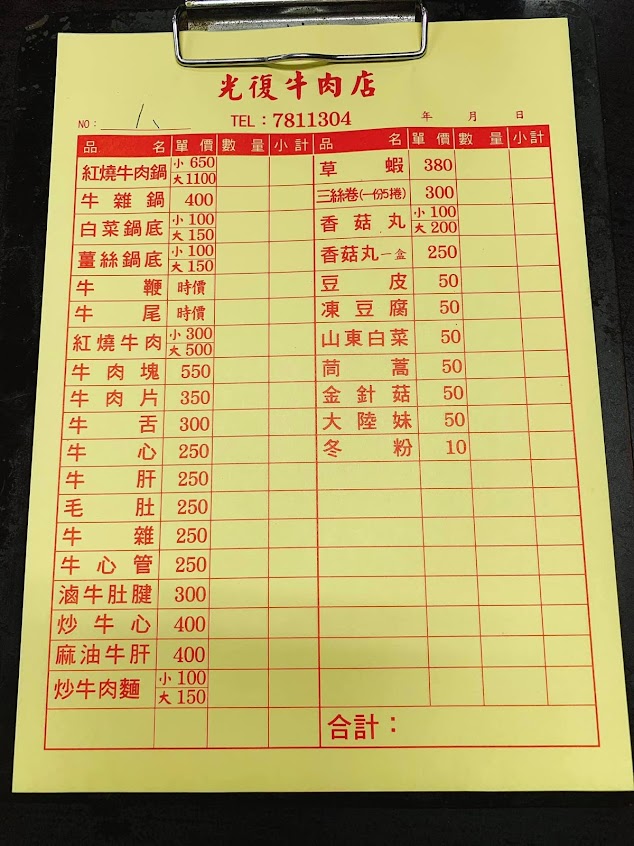 光復牛肉店
NO:
TEL:7811304 年 月 日
品名 單價 數量 小計 品名 單價 數量 小計
紅燒牛肉鍋 小 650 大 1100
牛雜鍋 400
白菜鍋底 小 100 大 150
薑絲鍋底 小 100 大 150
牛鞭 時價
牛尾 時價
紅燒牛肉 小 300 大 500
牛肉塊 550
牛肉片 350
牛舌 300
牛心 250
牛肝 250
毛肚 250
牛雜 250
牛心管 250
滷牛肚腱 300
炒牛心 400
麻油牛肝 400
炒牛肉麵 小 100 大 150
草蝦 380
三絲卷(一份5捲) 300
香菇丸 小 100 大 200
香菇丸一盒 250
豆皮 50
凍豆腐 50
山東白菜 50
茼蒿 50
金針菇 50
大陸妹 50
冬粉 10
合計：